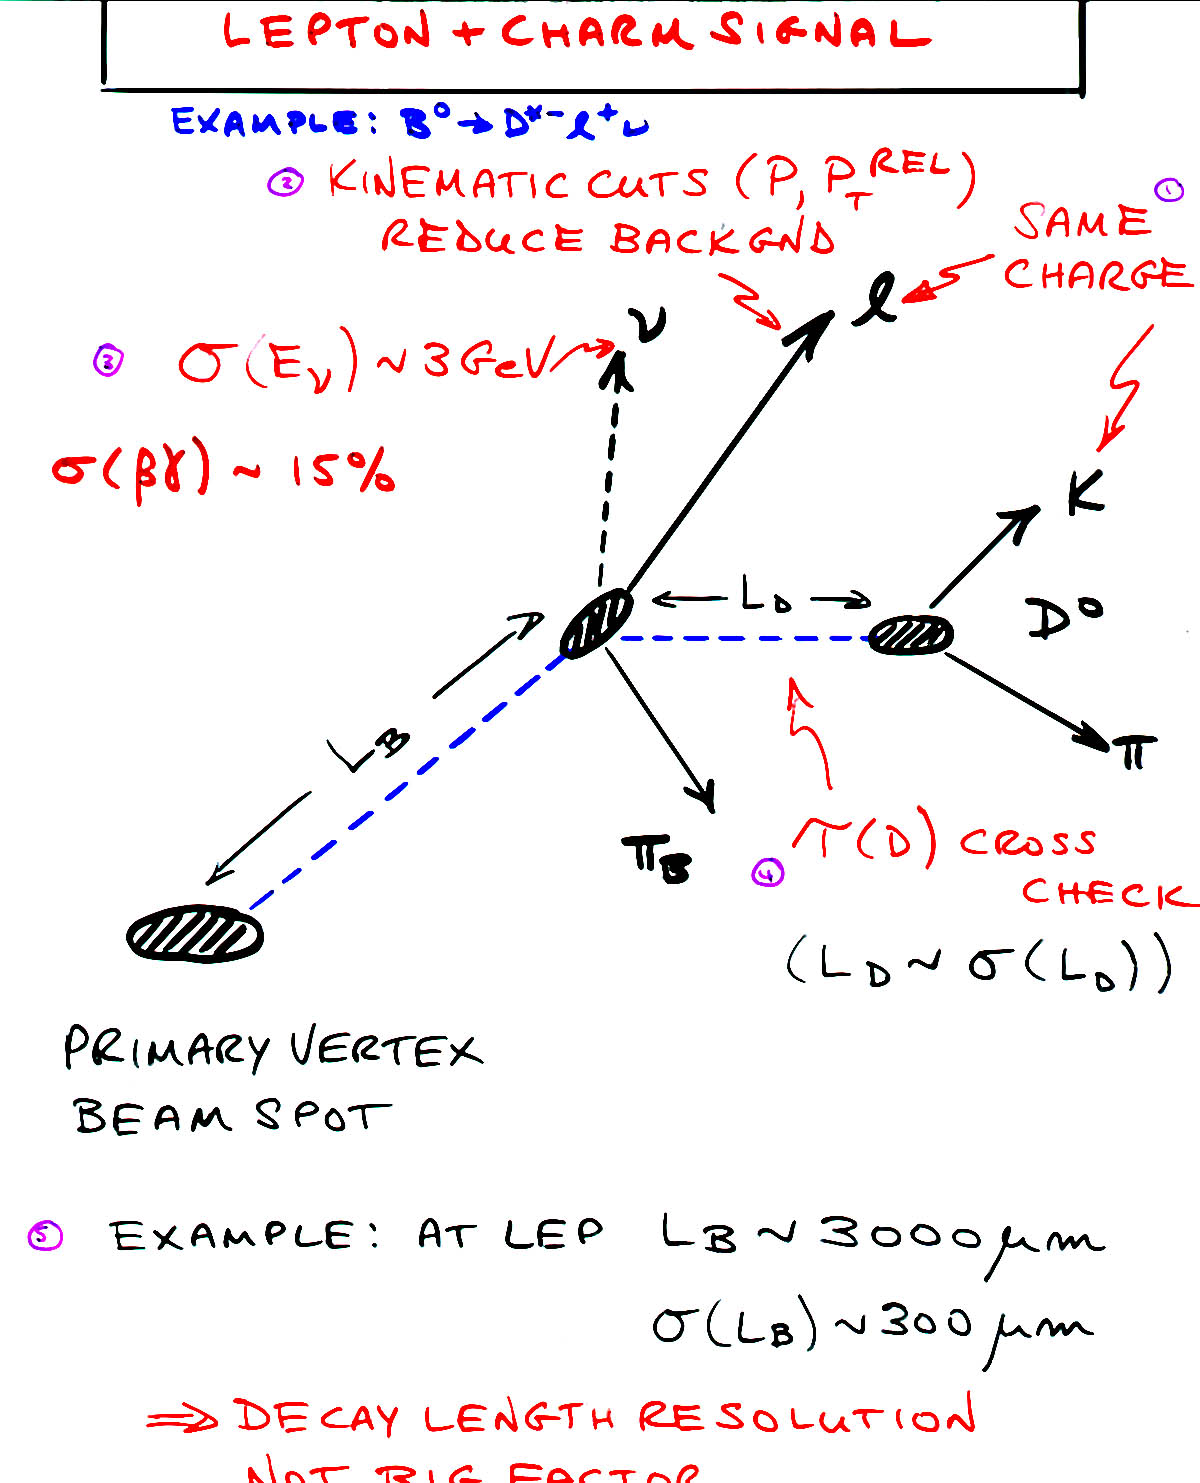 LEPTON + CHARM SIGNAL
EXAMPLE: B⁰ → D*⁻ ℓ⁺ ν
② KINEMATIC CUTS (P, P_T^REL)
REDUCE BACKGND
①
SAME
CHARGE
ℓ
ν
③ σ(E_ν) ~ 3 GeV
σ(βγ) ~ 15%
K
← L_D →
D⁰
L_B
π
π_B
④ τ(D) CROSS
CHECK
(L_D ~ σ(L_D))
PRIMARY VERTEX
BEAM SPOT
⑤ EXAMPLE: AT LEP L_B ~ 3000 μm
σ(L_B) ~ 300 μm
⇒ DECAY LENGTH RESOLUTION
NOT BIG FACTOR